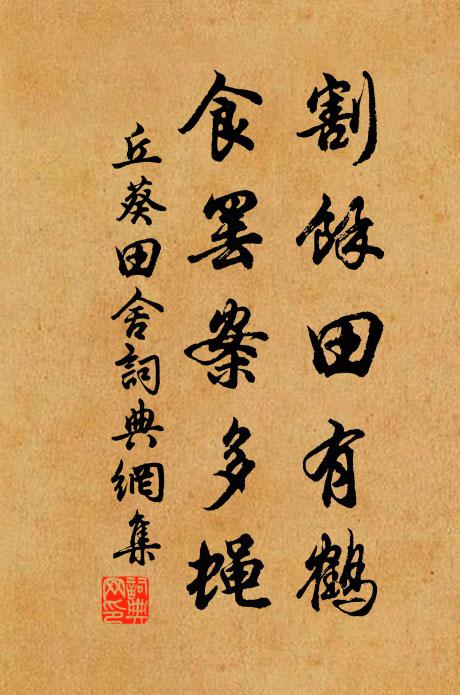 割餘田有鶴
食罷案多蝇
丘葵田舍詞典網集
詞典
网印